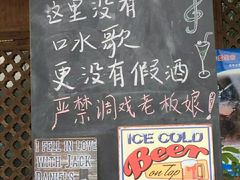 这里没有
口水歌
更没有假酒
严禁调戏老板娘！
I FELL IN LOVE
WITH JACK
DANIELS
ICE COLD
Beer
on Tap